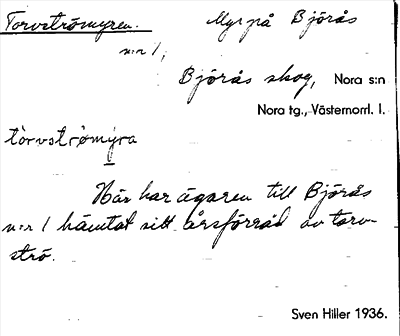 Torvströmyren. Myr på Björås
n:r 1,
Björås skog, Nora s:n
Nora tg., Västernorrl. l.
tòrvströmýra
Här har ägaren till Björås
n:r 1 hämtat sitt årsförråd av torv-
strö.
Sven Hiller 1936.